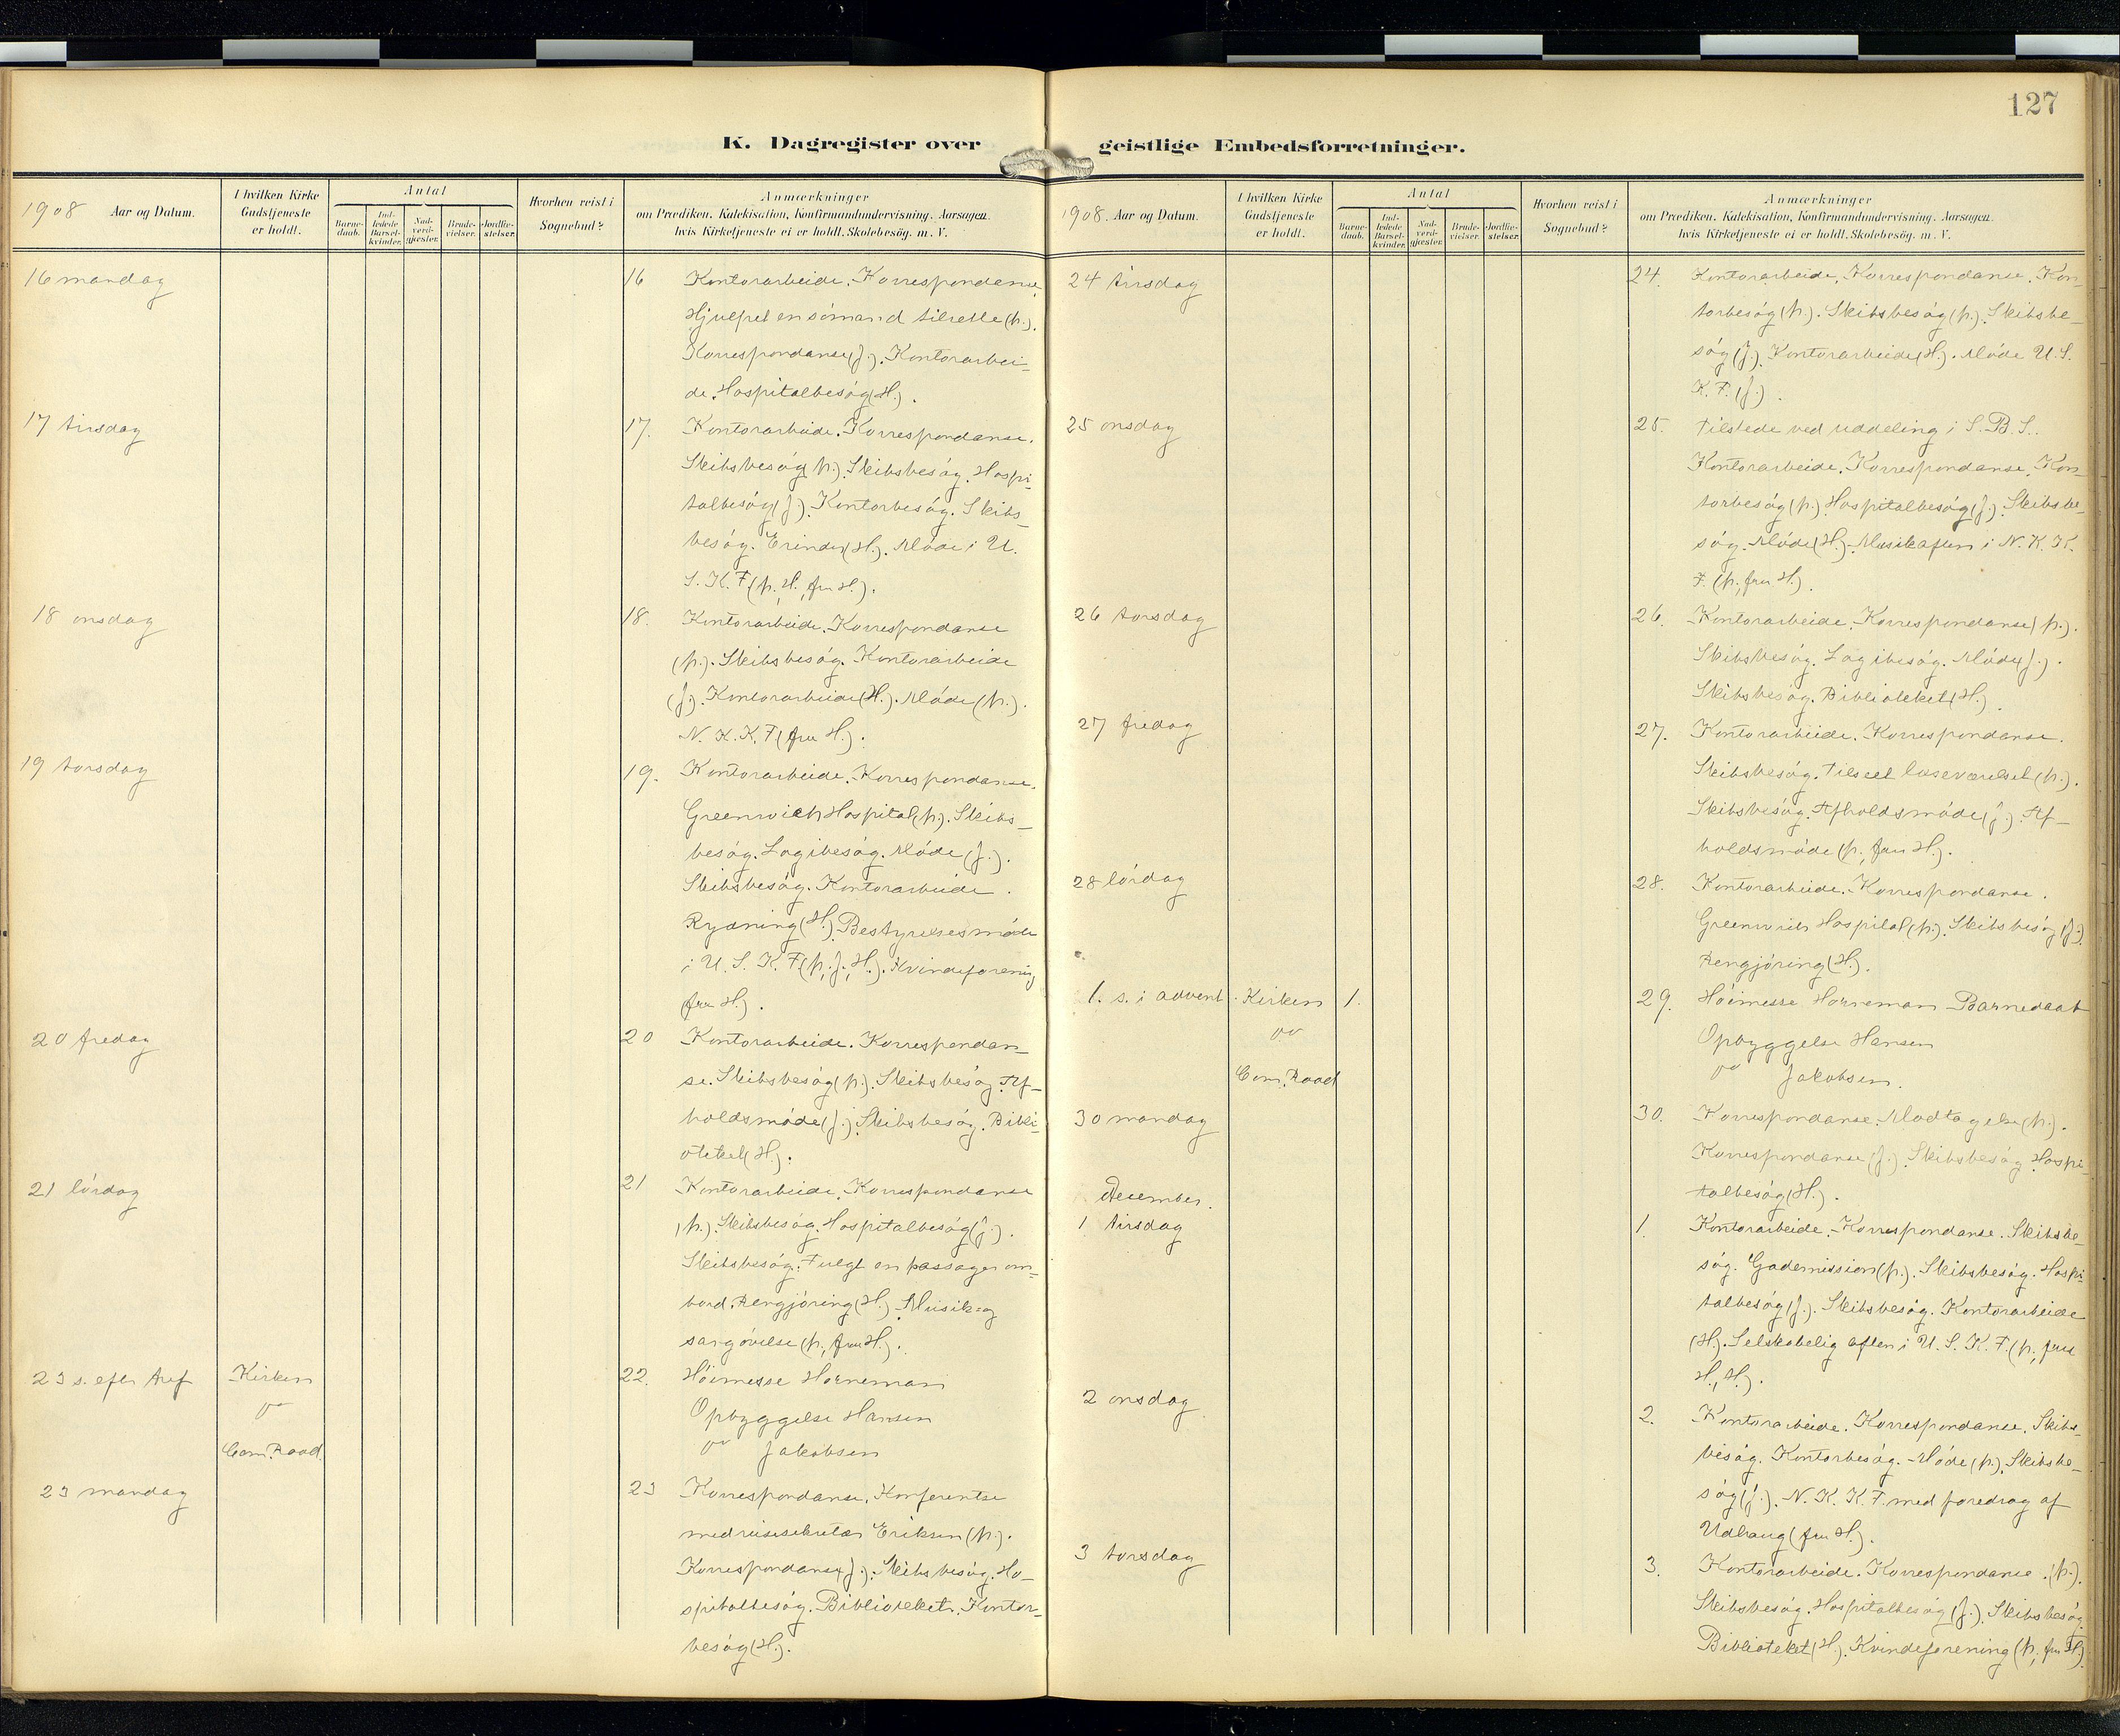 127
K. Dagregister over geistlige Embedsforretninger.
1908 Aar og Datum.
I hvilken Kirke Gudstjeneste er holdt.
Antal
Barne-daab.
Ind-ledede Barsel-kvinder.
Nad-verd-gjæster.
Brude-vielser.
Jordfæ-stelser.
Hvorhen reist i Sognebud?
Anmærkninger
om Prædiken, Katekisation, Konfirmandundervisning, Aarsagen,
hvis Kirketjeneste ei er holdt, Skolebesög. m. V.
16 mandag
16 Kontorarbeide. Korrespondanse
Hjulpet en sömand tilrette (p.).
Korrespondanse (J.). Kontorarbei-
de. Hospitalbesög (H.).
17 tirsdag
17. Kontorarbeide. Korrespondanse.
Skibsbesög (p.). Skibsbesög. Hospi-
talbesög (J.). Kontorbesög. Skibs-
besög. Erinder (H.). Möde i U.
S. K. F (p., H., fru H.).
18 onsdag
18. Kontorarbeide. Korrespondanse
(p.). Skibsbesög. Kontorarbeide
(J.). Kontorarbeide (H.). Möde (p.).
N. K. K. F (fru H.).
19 torsdag
19. Kontorarbeide. Korrespondanse.
Greenwich Hospital (p.). Skibs-
besög. Logibesög. Möde (J.).
Skibsbesög. Kontorarbeide.
Rydning (H.). Bestyrelsesmöde
i U. S. K. F (p., J., H.). Kvindeforening
(fru H.).
20 fredag
20 Kontorarbeide. Korrespondan-
se. Skibsbesög (p.). Skibsbesög. Af-
holdsmöde (J.). Skibsbesög. Bibli-
oteket (H.).
21 lördag
21 Kontorarbeide. Korrespondanse
(p.). Skibsbesög. Hospitalbesög (J.).
Skibsbesög. Fulgt en passager om-
bord. Rengjöring (H.). Musik= og
sangövelse (p., fru H.).
23 s. efter Tref
Kirken
22. Höimesse Horneman
Opbyggelse Hansen
Com. Road.
Jakobsen
23 mandag
23 Korrespondanse. Konferentse
med reisesekretær Eriksen (p.).
Korrespondanse (J.). Skibsbesög. Ho-
spitalbesög. Biblioteket. Kontor-
besög (H.).
1908. Aar og Datum.
I hvilken Kirke Gudstjeneste er holdt.
Antal
Barne-daab.
Ind-ledede Barsel-kvinder.
Nad-verd-gjæster.
Brude-vielser.
Jordfæ-stelser.
Hvorhen reist i Sognebud?
Anmærkninger
om Prædiken, Katekisation, Konfirmandundervisning, Aarsagen,
hvis Kirketjeneste ei er holdt, Skolebesög. m. V.
24 tirsdag
24. Kontorarbeide. Korrespondanse. Kon-
torbesög (p.). Skibsbesög (p.). Skibsbe-
sög (J.). Kontorarbeide (H.). Möde U. S.
K. F. (J.).
25 onsdag
25. Tilstede ved uddeling i S. B. S..
Kontorarbeide. Korrespondanse. Kon-
torbesög (p.) Hospitalbesög (J.). Skibsbe-
sög. Möde (H.). Musikaften i N. K. K.
F. (p., fru H.).
26 torsdag
26. Kontorarbeide. Korrespondanse (p.).
Skibsbesög. Logibesög. Möde (J.).
Skibsbesög. Biblioteket (H.).
27 fredag
27. Kontorarbeide. Korrespondanse.
Skibsbesög. Tilseet læseværelset (p.).
Skibsbesög. Afholdsmöde (J.). Af-
holdsmöde (p., fru H.).
28 lördag
28. Kontorarbeide. Korrespondanse.
Greenwich Hospital (p.). Skibsbesög (J.).
Rengjöring (H.).
1. s. i advent
Kirken
1.
29. Höimesse Horneman Barnedaab
Opbyggelse Hansen
Com. Road
Jakobsen.
30 mandag
30. Korrespondanse. Modtagelse (p.).
Korrespondanse (J.). Skibsbesög Hospi-
talbesög (H.).
December.
1 tirsdag
1. Kontorarbeide. Korrespondanse. Skibsbe-
sög. Gademission (p.). Skibsbesög. Hospi-
talbesög (J.). Skibsbesög. Kontorarbeide
(H.). Selskabelig aften i U. S. K. F. (p., fru
H., H.).
2 onsdag
2. Kontorarbeide. Korrespondanse. Skibs-
besög. Kontorbesög. Möde (p.). Skibsbe-
sög (J.). N. K. K. F. med foredrag af
Udhaug (fru H.).
3 torsdag
3. Kontorarbeide. Korrespondanse. (p.).
Skibsbesög. Hospitalbesög (J.). Skibsbesög.
Biblioteket (H.). Kvindeforening (p., fru H.)